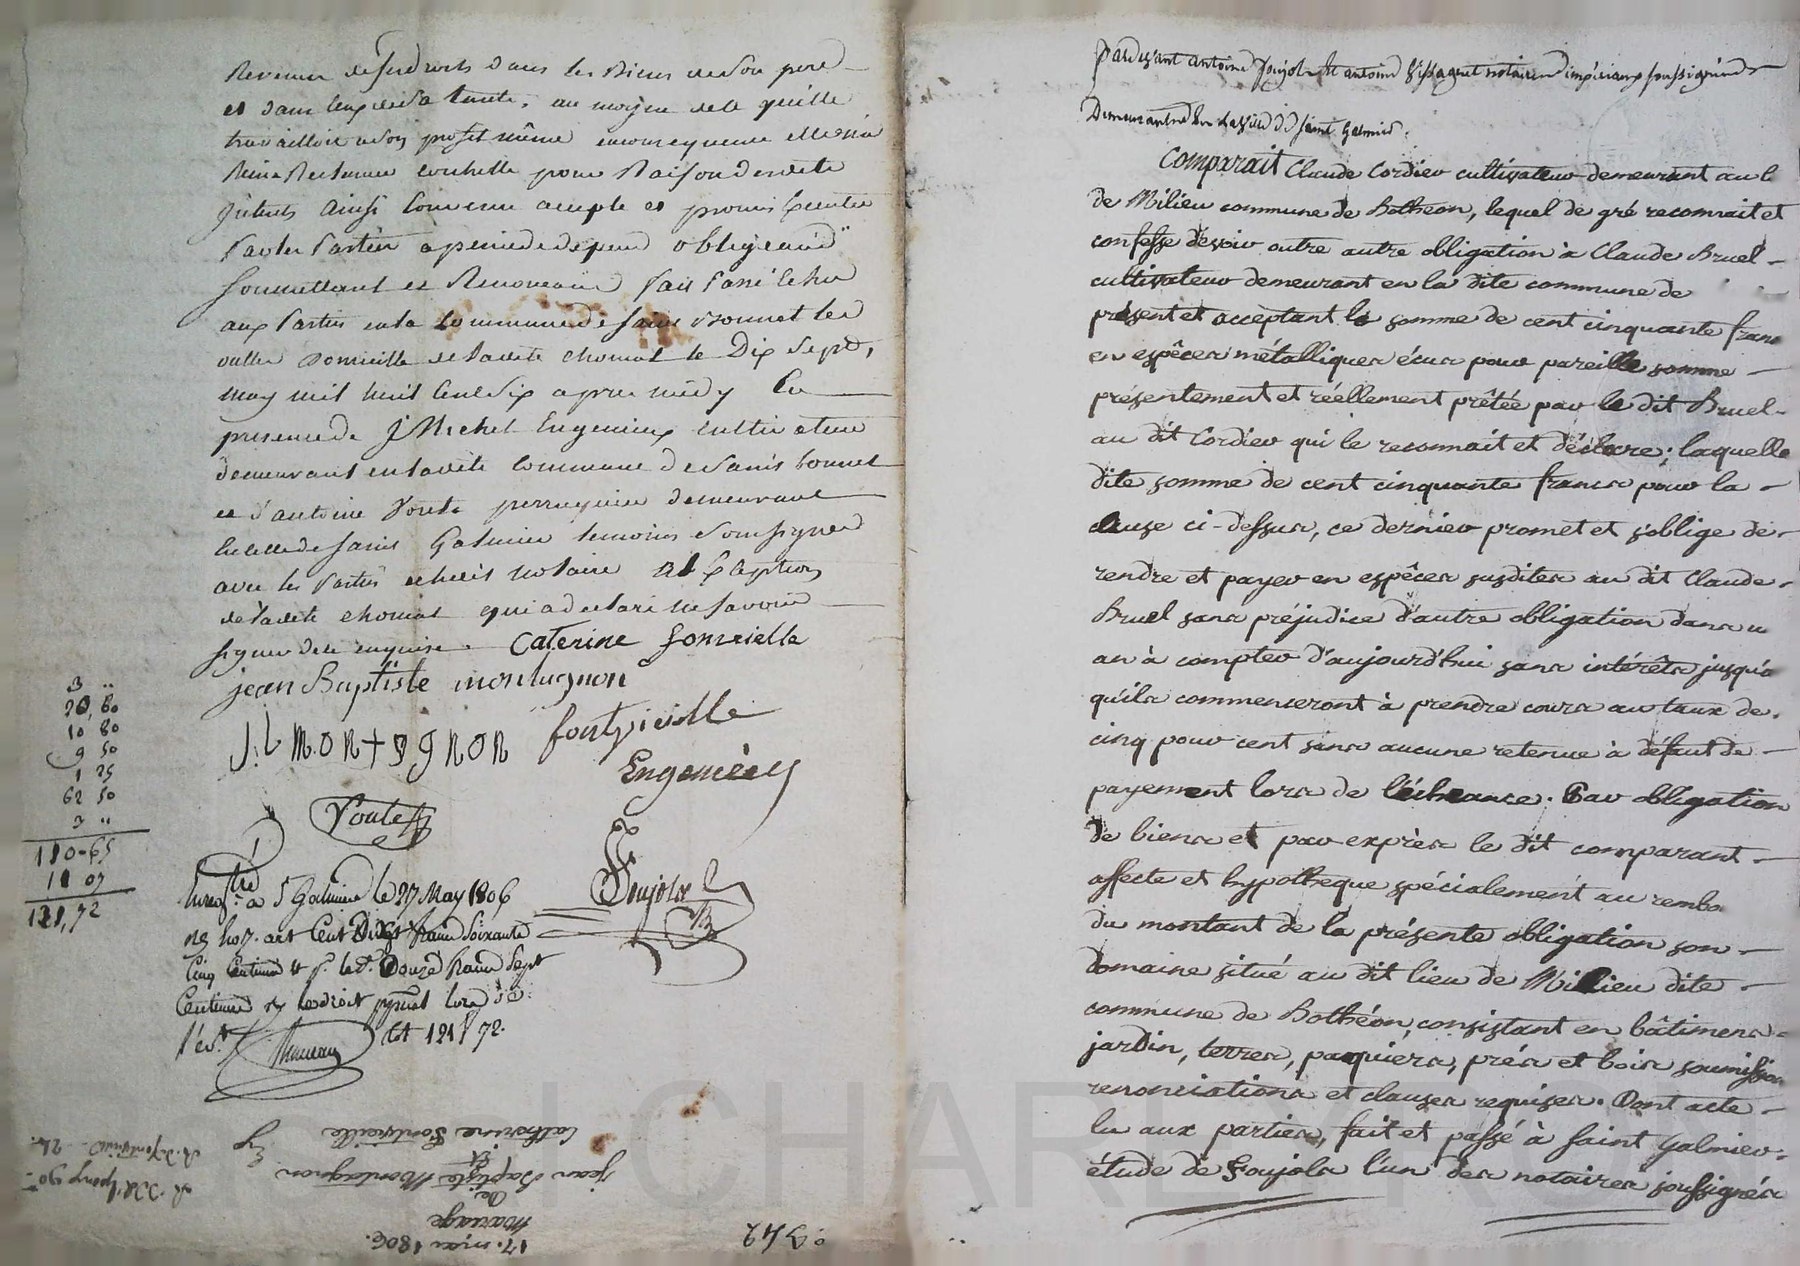 Revenus de ses droits dans les Biens de son pere
et dans ceux de sa tante, au moyen de ce qu'elle
travailloit à son profit même en consequence elle n'en
sera Recherchee pour Raison desdits
jnterets ainsi convenu accepté et promis executer
par les parties à peine de depend obligeant
soumettant et Renoncant fait passé et lu
aux parties en la commune de saint Bonnet les
oulles domicille de ladite chomat le Dix sept
may mil huit cent six apres midy En
presence de J Michel Engenieux cultivateur
demeurant en ladite commune de saint bonnet
et d'antoine Voute perruquier demeurant
en celle de saint Galmier temoins soussignes
avec les parties et ledit notaire à l'exception
de ladite chomat qui a declaré ne savoir
signer de ce enquise. Caterine fonvielle
jean Baptiste montagnon
J. l montagnon fontvieille
Engenieux
Voute
3 "
20, 80
10 80
9 50
1 25
62 50
3 "
110-65
11 07
121,72
Enregtré à St Galmier le 27 May 1806
reçu cent Dix francs Soixante
Cinq Centimes et p. le d. onze francs Sept
Centimes
tot 121 f 72.
Foujols
Catherine Fontvieille
Et
jean Baptiste Montagnon
De
Mariage
17. may 1806.
Pardevant antoine Foujols et antoine Vissaguet notaires impériaux soussignés
Demeurant en la ville de saint Galmier.
Comparait Claude Cordier cultivateur demeurant au l
de Milieu commune de Bothéon, lequel de gré reconnait et
confesse devoir outre autre obligation à Claude Bruel
cultivateur demeurant en la dite commune de
présent et acceptant la somme de cent cinquante franc
en espèces métalliques écus pour pareille somme
présentement et réellement prêtée par le dit Bruel
au dit Cordier qui le reconnait et déclare; laquelle
dite somme de cent cinquante francs pour la
cause ci-dessus, ce dernier promet et s'oblige de
rendre et payer en espèces susdites au dit Claude
Bruel sans préjudice d'autre obligation dans u
an à compter d'aujourd'hui sans intérêts jusqu'à
qu'ils commenseront à prendre cours au taux de
cinq pour cent sans aucune retenue à défaut de
payement lors de l'écheance. Par obligation
de biens et par exprès le dit comparant
affecte et hypotheque spécialement au rembo
du montant de la présente obligation son
domaine situé au dit lieu de Milieu dite
commune de Bothéon, consistant en bâtimens
jardin, terres, paquiers, prés et bois soumission
renonciations et clauses requises. Dont acte
lu aux parties, fait et passé à saint Galmier
étude de Foujols l'un des notaires soussignés